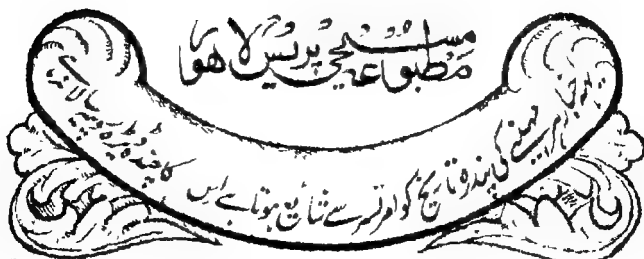 مطبوعہ مسیحی پریس لاہور
یہ اخبار ہر مہینے کی پندرہ تاریخ کو امرتسر سے شائع ہوتا ہے اس کا چندہ ڈیڑھ روپیہ سالانہ ہے